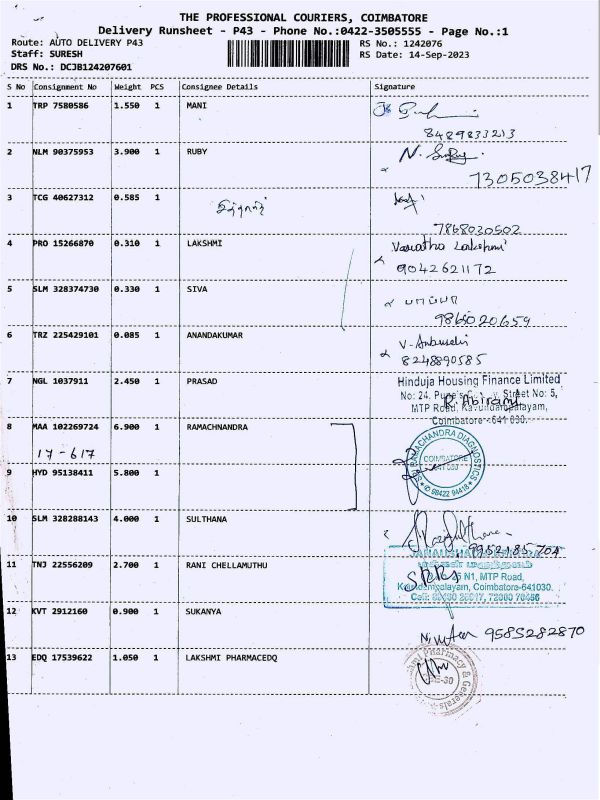 THE PROFESSIONAL COURIERS, COIMBATORE
Delivery Runsheet - P43 - Phone No.:0422-3505555 - Page No.:1
Route: AUTO DELIVERY P43
RS No.: 1242076
Staff: SURESH
RS Date: 14-Sep-2023
DRS No.: DCJB124207601
S No Consignment No Weight PCS Consignee Details Signature
1 TRP 7580586 1.550 1 MANI
8489833213
2 NLM 90375953 3.900 1 RUBY N.
7305038417
3 TCG 40627312 0.585 1
7868030502
4 PRO 15266870 0.310 1 LAKSHMI Lakshmi
9042621172
5 SLM 328374730 0.330 1 SIVA பாப்பா
9865020659
6 TRZ 225429101 0.085 1 ANANDAKUMAR V-
8248890585
7 NGL 1037911 2.450 1 PRASAD Hinduja Housing Finance Limited
No: 24, Street No: 5,
R. Abirami
MTP Road, Kavundampalayam,
Coimbatore-641 030.
8 MAA 102269724 6.900 1 RAMACHNANDRA
17-617
SRI RAMACHANDRA DIAGNOSTICS
COIMBATORE
98422 94418
9 HYD 95138411 5.800 1
10 SLM 328288143 4.000 1 SULTHANA
9952185704
11 TNJ 22556209 2.700 1 RANI CHELLAMUTHU
N1, MTP Road,
Coimbatore-641030.
Cell: 72000 70456
12 KVT 2912160 0.900 1 SUKANYA
9585282870
13 EDQ 17539622 1.050 1 LAKSHMI PHARMACEDQ
Pharmacy & Generals